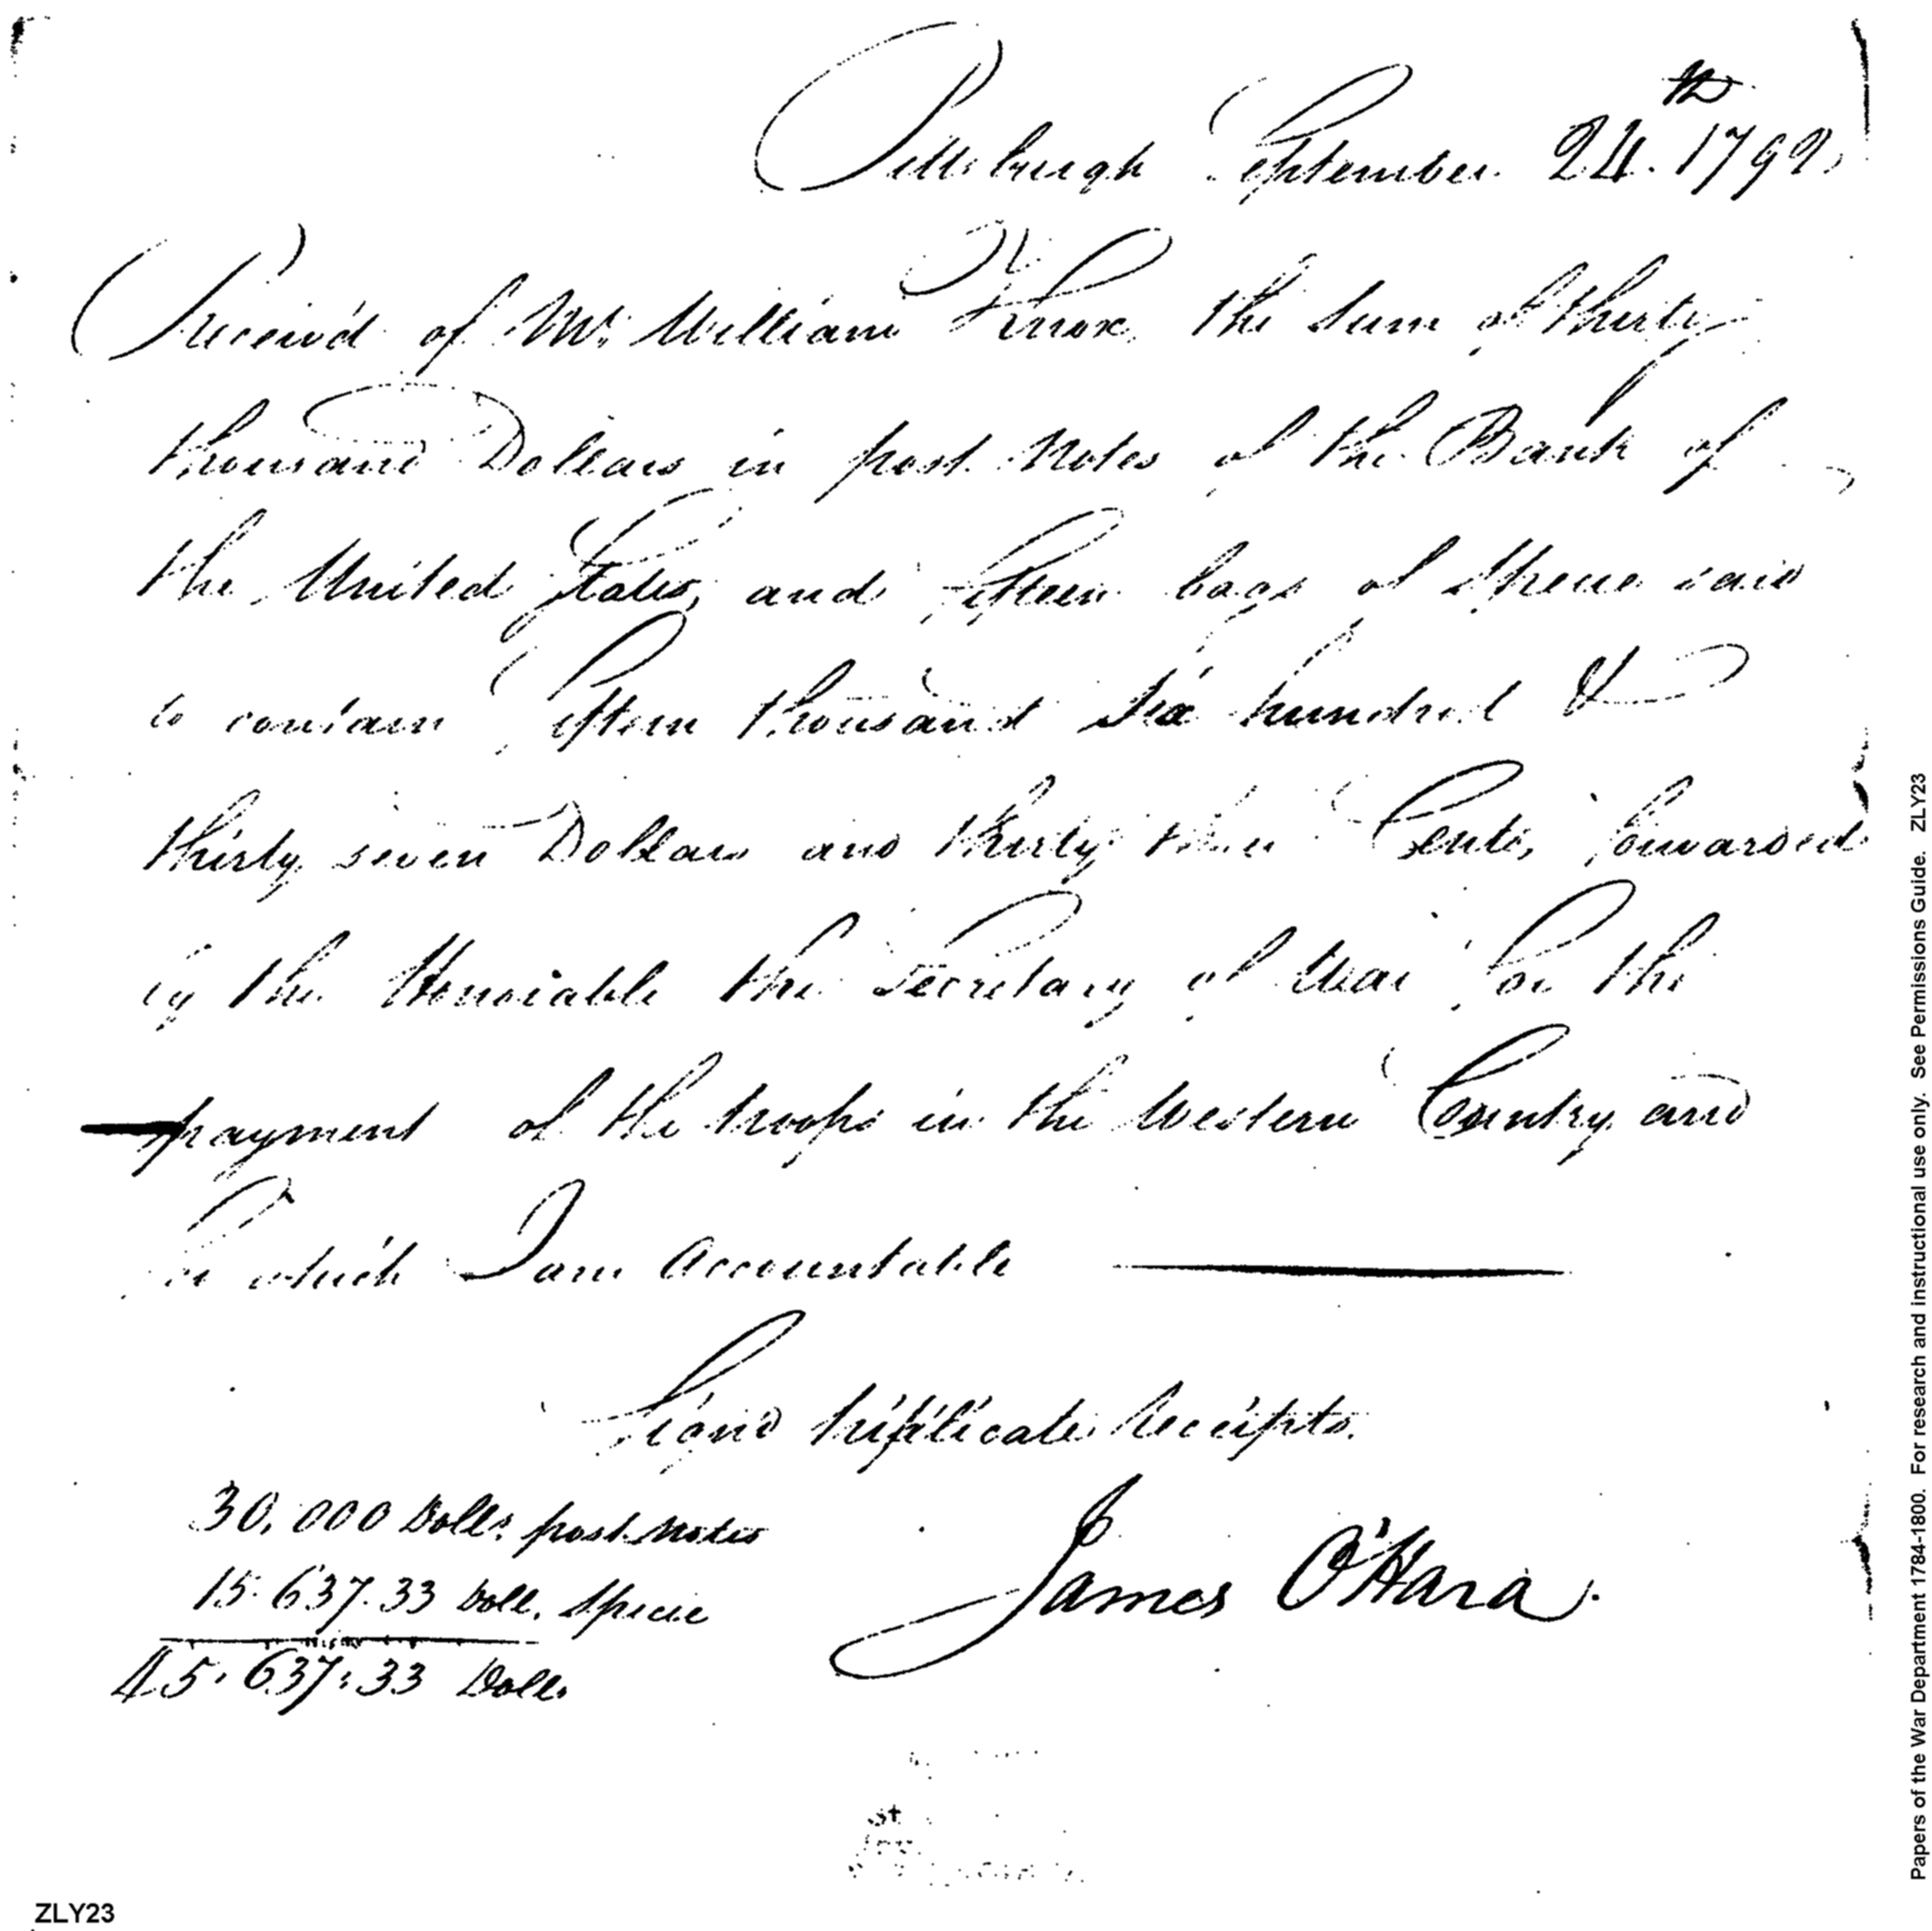 Pittsburgh September 24th. 1792.
Receiv'd of Mr. William Knox the Sum of thirty
thousand Dollars in post Notes of the Bank of
the United States, and fifteen bags of Specie said
to contain fifteen thousand Six hundred &
thirty seven Dollars and thirty three Cents, forwarded
by the Honorable the Secretary of War for the
payment of the troops in the Western Country and
for which I am Accountable
Signd triplicate Receipts.
30,000 Dolls. post Notes
15.637.33 Doll. Specie
45.637.33 Dolls.
James O'Hara.
ZLY23
Papers of the War Department 1784-1800. For research and instructional use only. See Permissions Guide. ZLY23